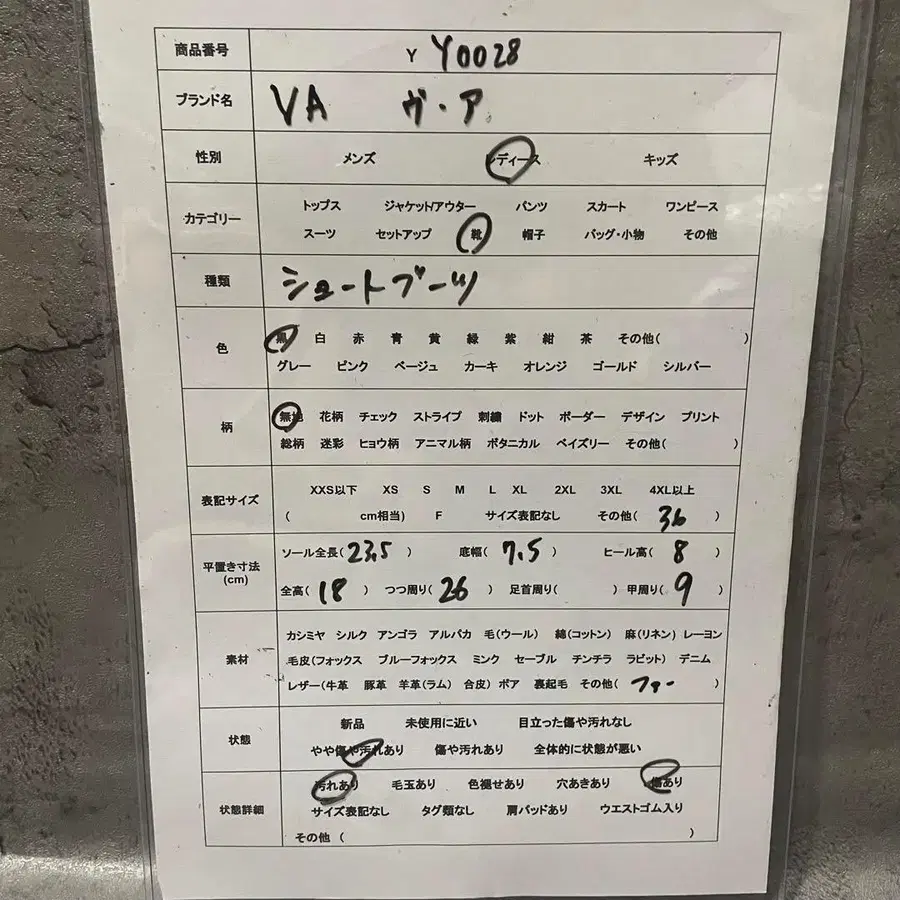 商品番号 Y Y0028
ブランド名 VA ヴ・ア
性別 メンズ レディース キッズ
カテゴリー トップス ジャケット/アウター パンツ スカート ワンピース
スーツ セットアップ 靴 帽子 バッグ・小物 その他
種類 ショートブーツ
色 黒 白 赤 青 黄 緑 紫 紺 茶 その他( )
グレー ピンク ベージュ カーキ オレンジ ゴールド シルバー
柄 無地 花柄 チェック ストライプ 刺繍 ドット ボーダー デザイン プリント
総柄 迷彩 ヒョウ柄 アニマル柄 ボタニカル ペイズリー その他( )
表記サイズ XXS以下 XS S M L XL 2XL 3XL 4XL以上
( cm相当) F サイズ表記なし その他( 36 )
平置き寸法 (cm) ソール全長( 23.5 ) 底幅( 7.5 ) ヒール高( 8 )
全高( 18 ) つつ周り( 26 ) 足首周り( ) 甲周り( 9 )
素材 カシミヤ シルク アンゴラ アルパカ 毛(ウール) 綿(コットン) 麻(リネン) レーヨン
毛皮(フォックス ブルーフォックス ミンク セーブル チンチラ ラビット) デニム
レザー(牛革 豚革 羊革(ラム) 合皮) ボア 裏起毛 その他( ファー )
状態 新品 未使用に近い 目立った傷や汚れなし
やや傷や汚れあり 傷や汚れあり 全体的に状態が悪い
状態詳細 汚れあり 毛玉あり 色褪せあり 穴あきあり 傷あり
サイズ表記なし タグ類なし 肩パッドあり ウエストゴム入り
その他 ( )